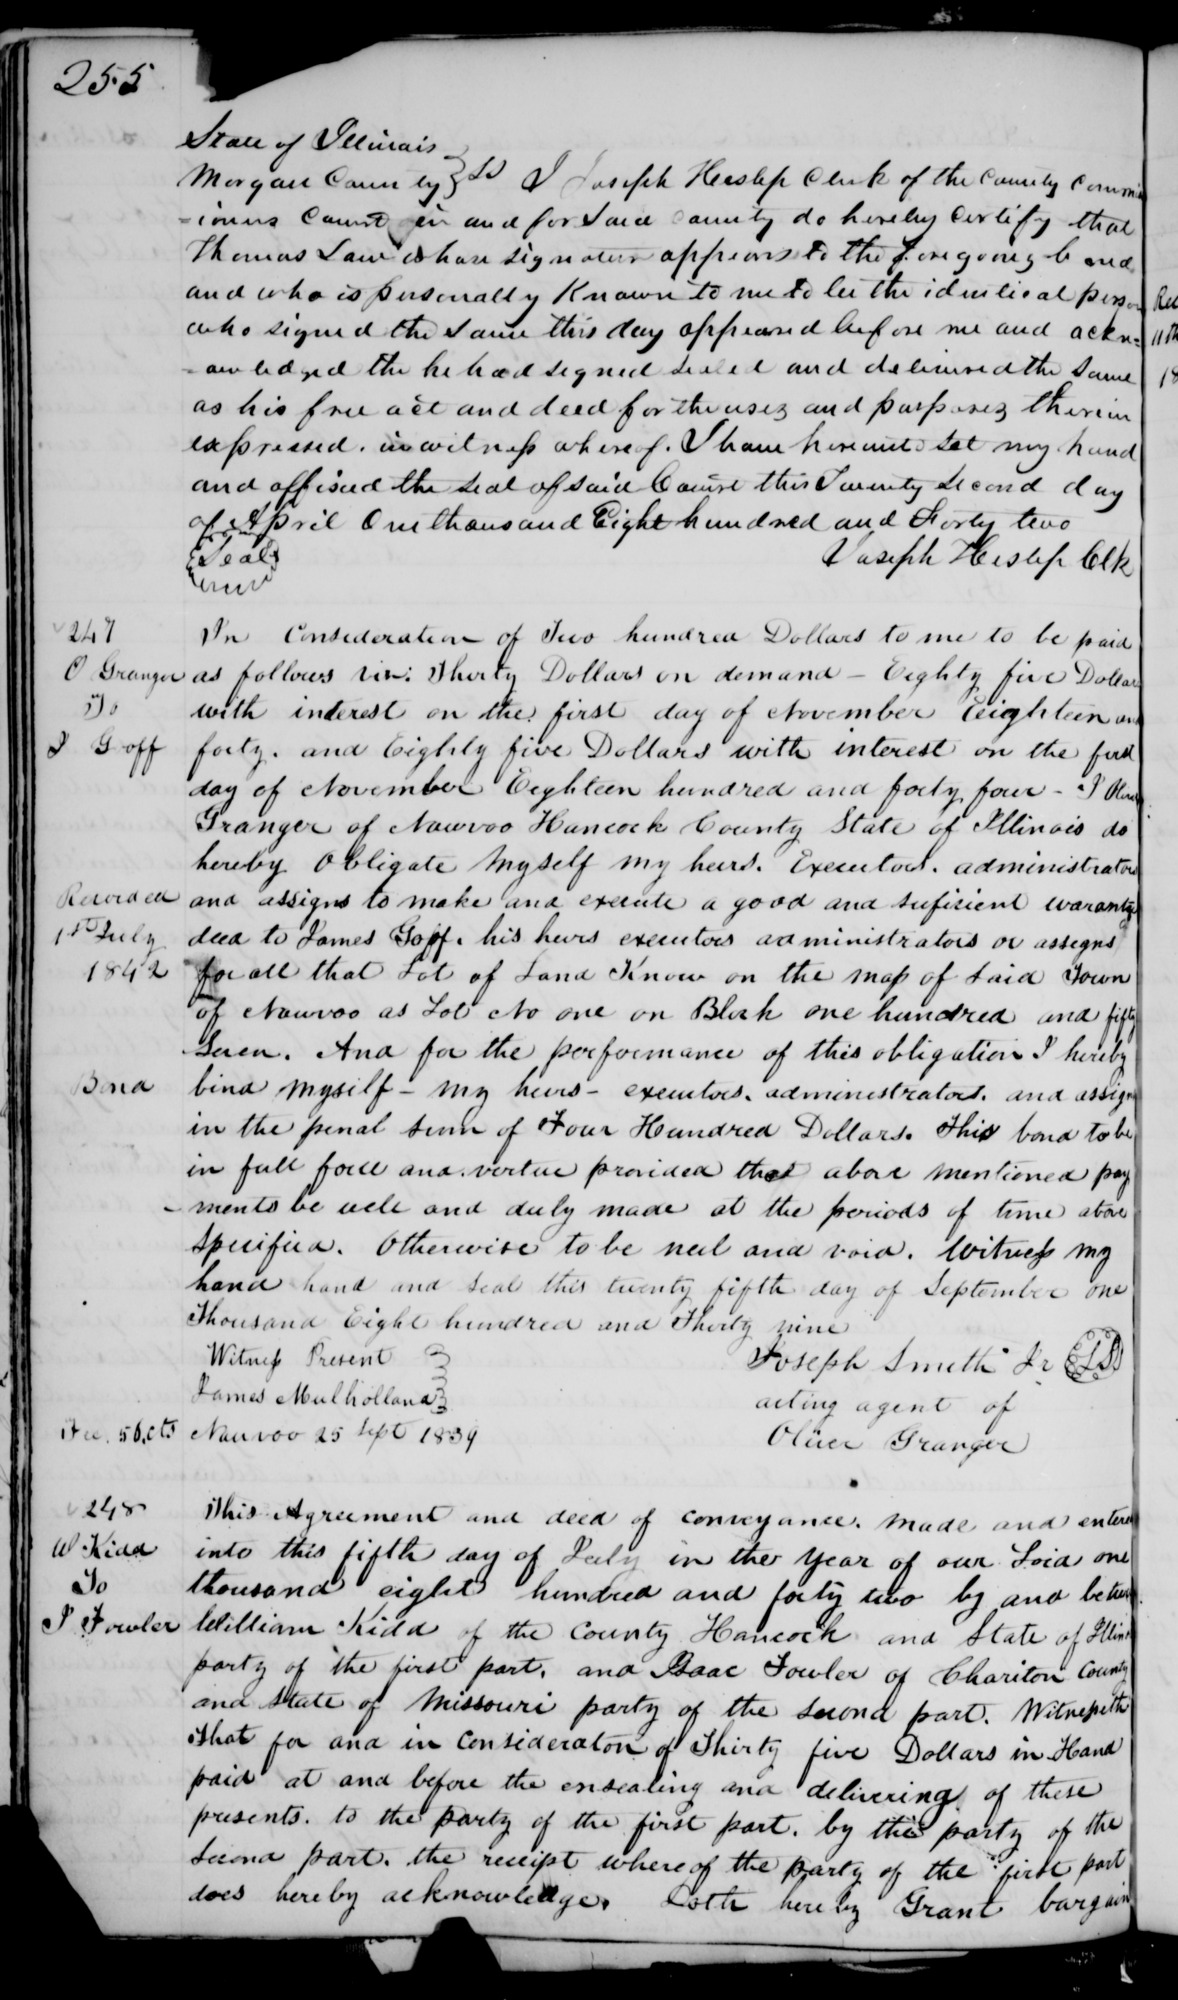 255
State of Illinois
Morgan County } SS I Joseph Heslep Clerk of the County Commis
-ioners Court in and for Said County do hereby Certify that
Thomas Law whose signature appears to the foregoing bond
and who is personally Known to me to be the identical person
who signed the Same this day appeared before me and ackn=
-owledged the he had signed sealed and delivered the Same
as his free act and deed for the uses and purposes therein
expressed. in witness whereof. I have hereunto Set my hand
and affixed the Seal of Said Court this Twenty Second day
of April One thousand Eight hundred and Forty two
Seal
Joseph Heslep Clk
247
O Granger
To
J Goff
Recorded
1st July
1842
Bond
Fee. 50, cts
In Consideration of Two hundred Dollars to me to be paid
as follows viz: Thirty Dollars on demand - Eighty five Dollars
with interest on the first day of November Eighteen and
forty. and Eighty five Dollars with interest on the first
day of November Eighteen hundred and forty four - I Oliver
Granger of Nauvoo Hancock County State of Illinois do
hereby Obligate Myself my heirs. Executors. administrators
and assigns to make and execute a good and suficient waranty
deed to James Goff. his heirs executors administrators or assigns
for all that Lot of Land Know on the map of Said Town
of Nauvoo as Lot No one on Block one hundred and fifty
Seven. And for the performance of this obligation I hereby
bind Myself - my heirs - executors. administrators. and assigns
in the penal sum of Four Hundred Dollars. This bond to be
in full force and vertue provided that above mentioned pay
- ments be well and duly made at the periods of time above
Specified. Otherwise to be null and void. Witness my
hand hand and Seal this twenty fifth day of September one
Thousand Eight hundred and Thirty nine
Witness Present
James Mulholland
Nauvoo 25 Sept 1839
Joseph Smith Jr LS
acting agent of
Oliver Granger
248
W Kidd
To
I Fowler
This Agreement and deed of conveyance. Made and entered
into this fifth day of July in the Year of our Lord one
thousand eight hundred and forty two by and between
William Kidd of the County Hancock and State of Illinois
party of the first part. and Isaac Fowler of Chariton County
and State of Missouri party of the Second part. Witnesseth
That for and in Consideraton of Thirty five Dollars in Hand
paid at and before the ensealing and delivering of these
presents. to the party of the first part. by the party of the
Second part. the receipt whereof the party of the first part
does hereby acknowledge. Doth hereby Grant bargain